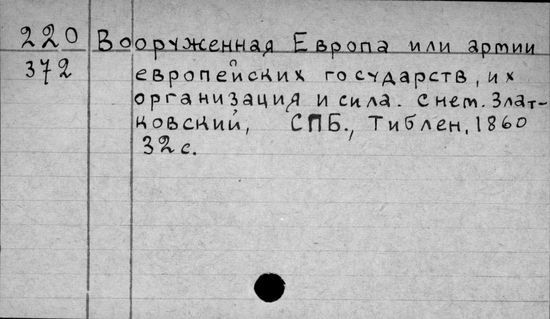 220 Вооруженная Европа или армии
372 европейских государств, их
организация и сила. с нем. Злат-
ковский, СПБ., Тиблен, 1860
32 с.